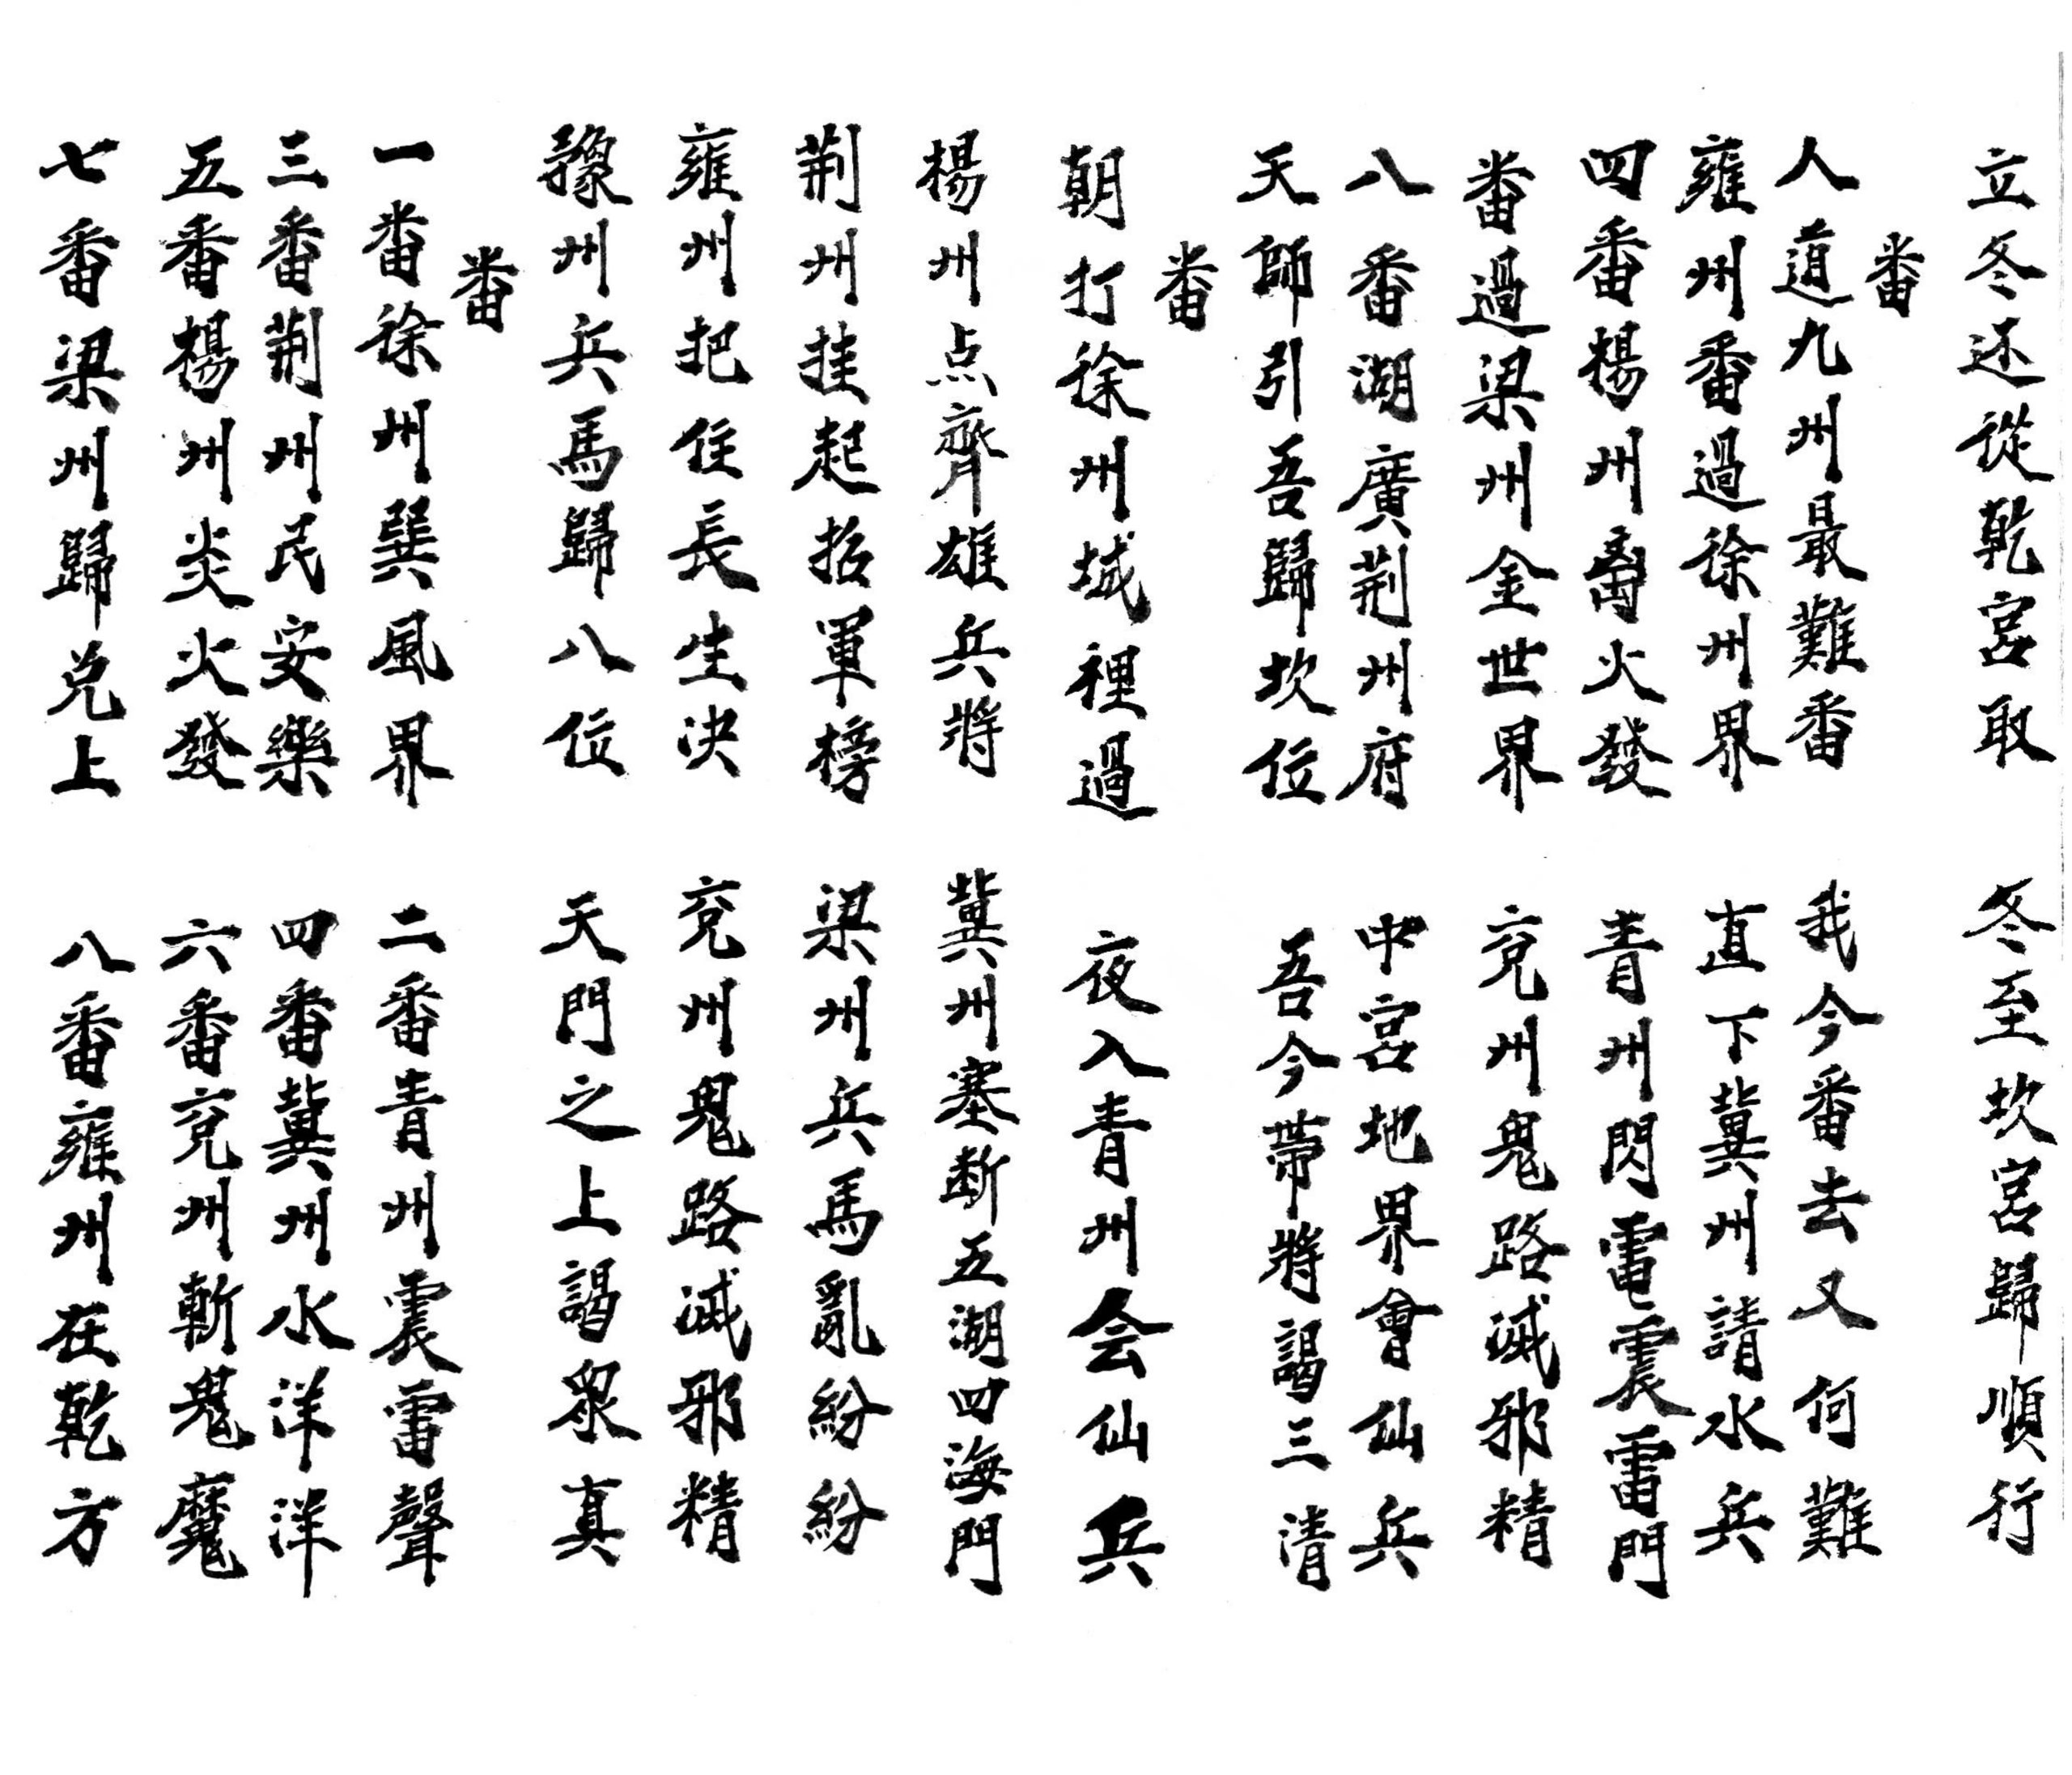 立冬还從乾宮取 冬至坎宮歸順行
番
人道九州最難番 我今番去又何難
雍州番過徐州界 直下冀州請水兵
四番楊州离火發 青州閃電震雷門
番過梁州金世界 兖州鬼路滅邪精
八番湖廣荆州府 中宮地界會仙兵
天師引吾歸坎位 吾今带將謁三清
番
朝打徐州城裡過 夜入青州会仙兵
楊州点齊雄兵將 冀州塞断五湖四海門
荆州挂起招軍榜 梁州兵馬亂紛紛
雍州把住長生決 兖州鬼路滅邪精
豫州兵馬歸八位 天門之上謁眾真
番
一番徐州巽風界 二番青州震雷聲
三番荆州民安樂 四番冀州水洋洋
五番楊州炎火發 六番兖州斬鬼魔
七番梁州歸兑上 八番雍州在乾方